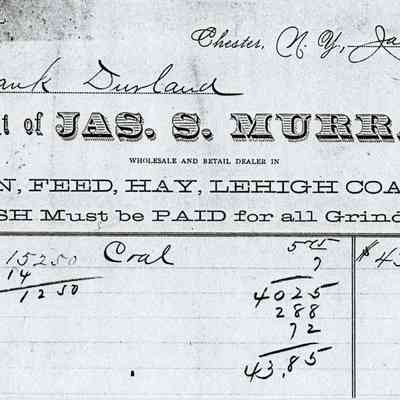 Chester, N. Y., Ja
ank Durland
t of JAS. S. MURR
WHOLESALE AND RETAIL DEALER IN
N, FEED, HAY, LEHIGH COA
SH Must be PAID for all Grind
15250 Coal 575 $ 43
14 7
1250 4025
288
72
43.85